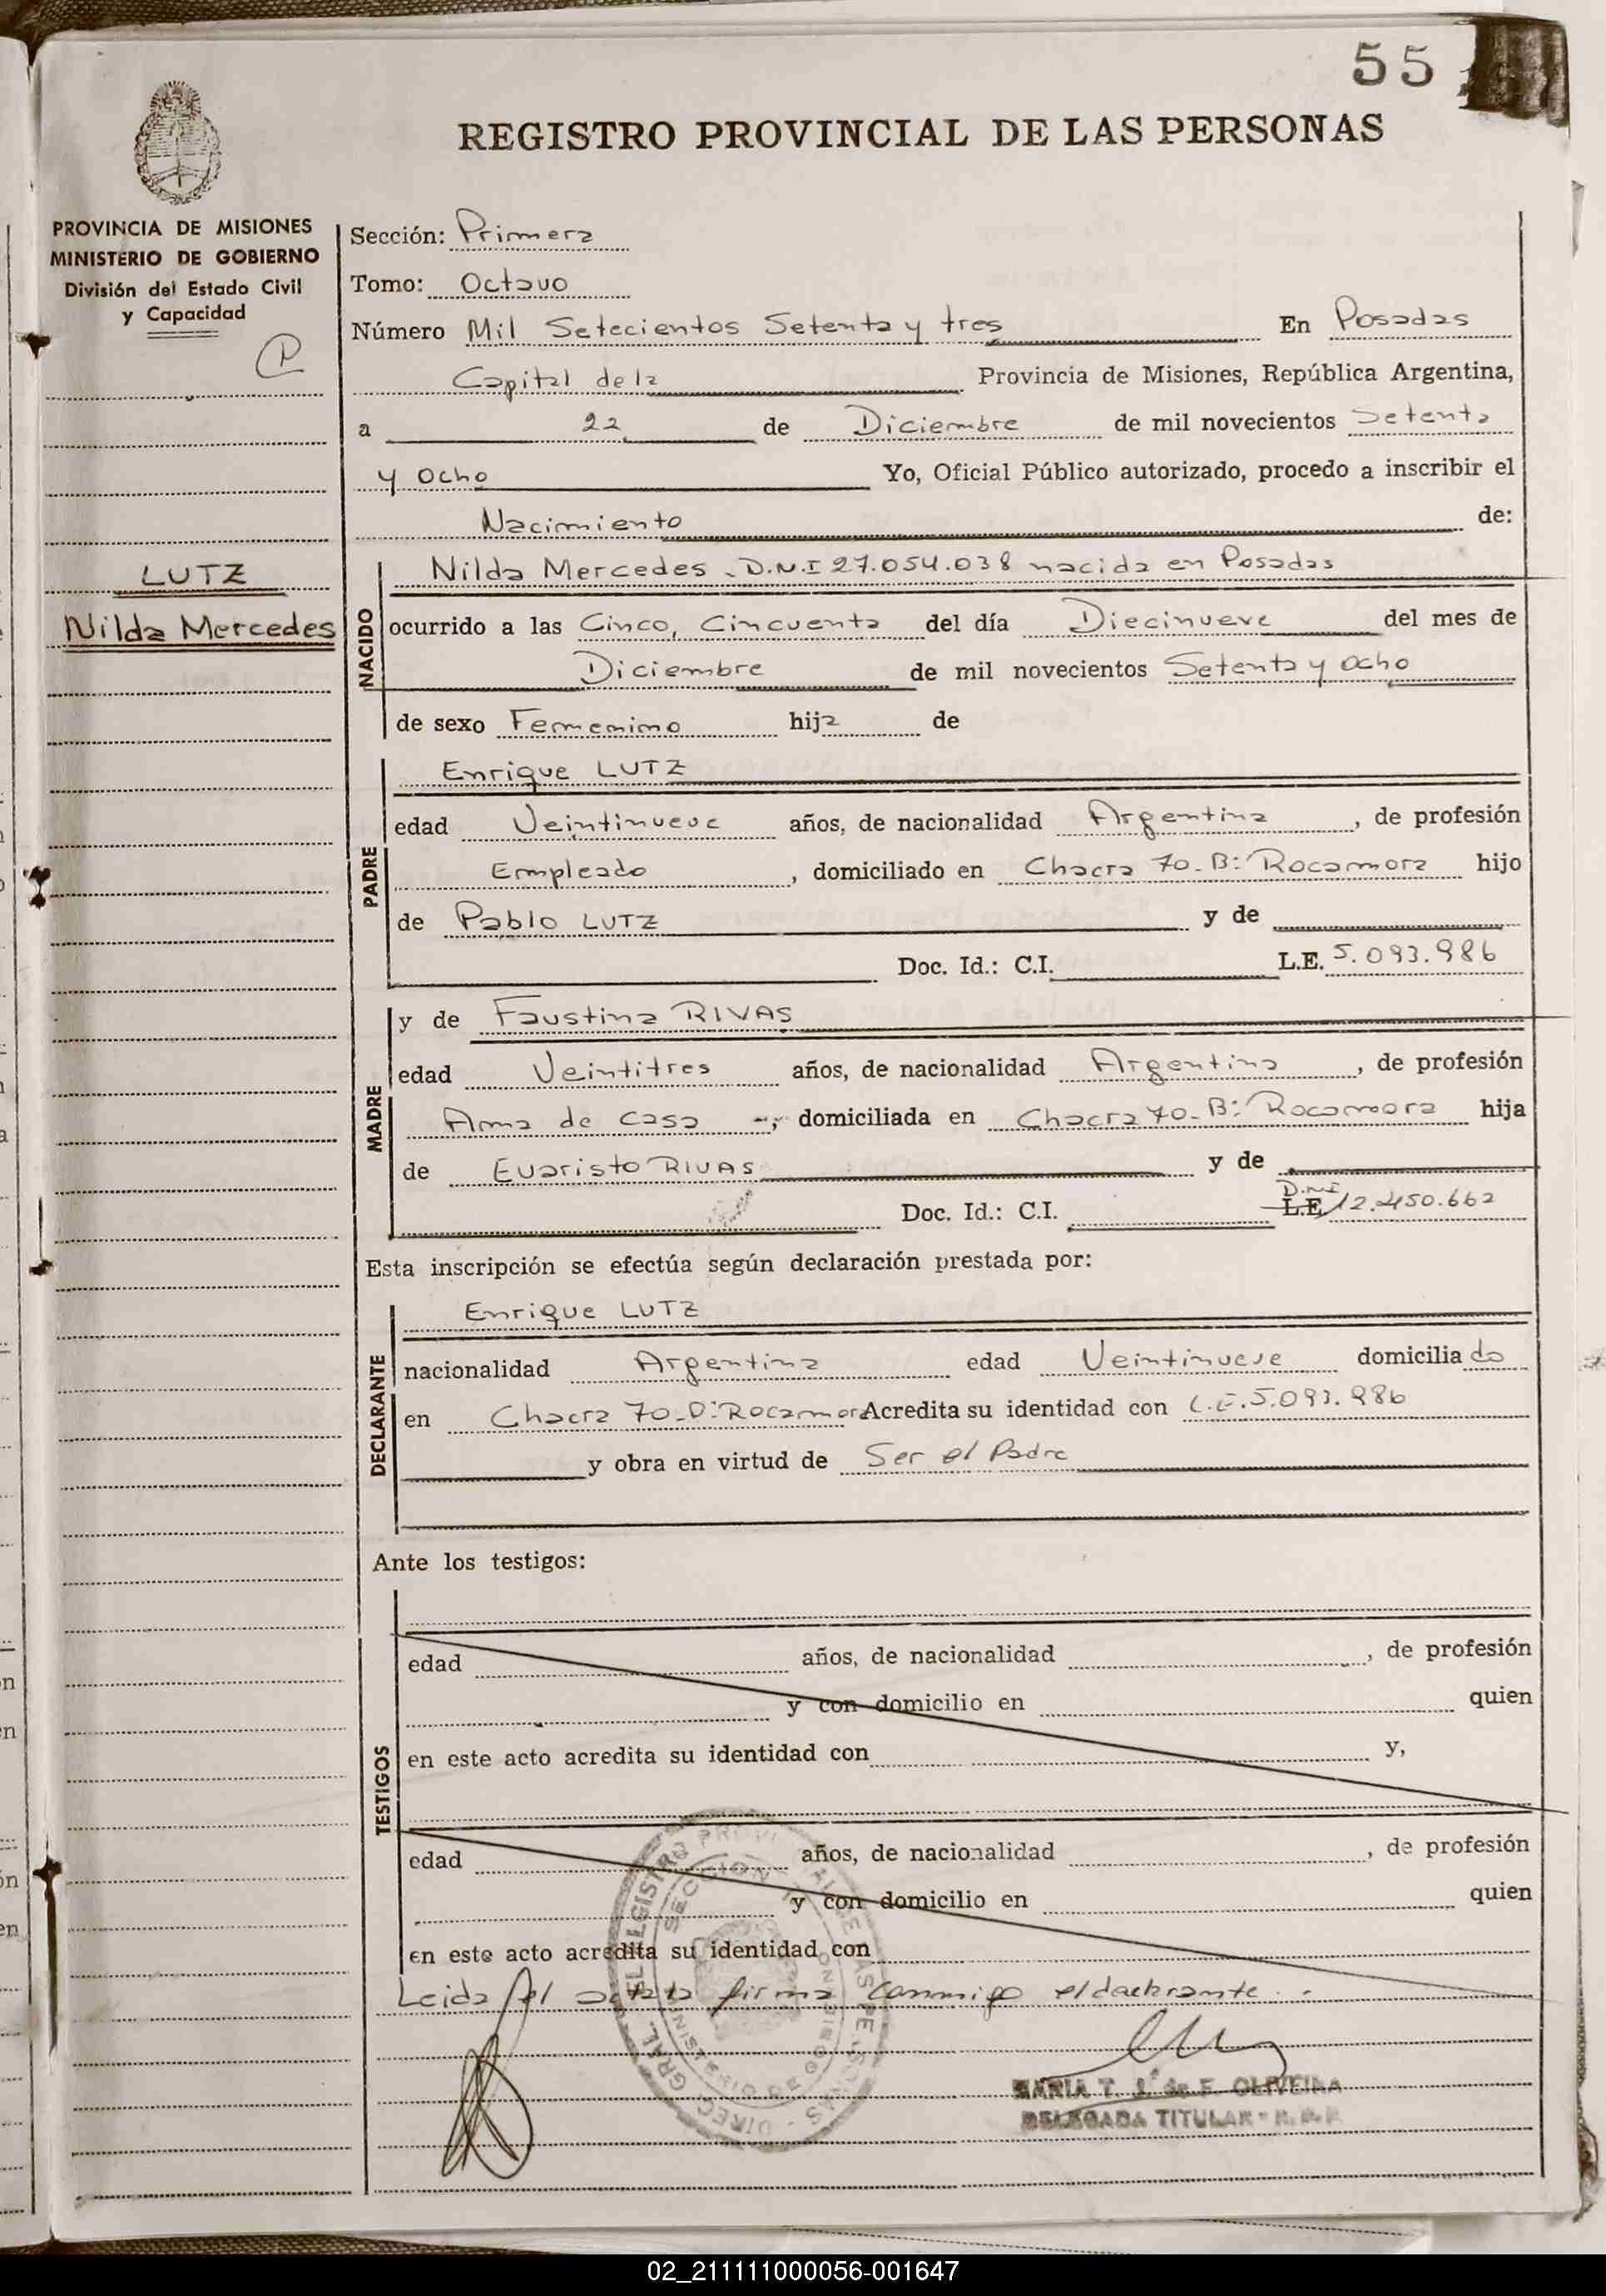 55
REGISTRO PROVINCIAL DE LAS PERSONAS
PROVINCIA DE MISIONES
MINISTERIO DE GOBIERNO
División del Estado Civil
y Capacidad
LUTZ
Nilda Mercedes
Sección: Primera
Tomo: Octavo
Número Mil Setecientos Setenta y tres En Posadas
Capital de la Provincia de Misiones, República Argentina,
a 22 de Diciembre de mil novecientos Setenta
y Ocho Yo, Oficial Público autorizado, procedo a inscribir el
Nacimiento de:
NACIDO
Nilda Mercedes - D.N.I 27.054.038 nacida en Posadas
ocurrido a las Cinco, Cincuenta del día Diecinueve del mes de
Diciembre de mil novecientos Setenta y Ocho
de sexo Femenino hija de
PADRE
Enrique LUTZ
edad Veintinueve años, de nacionalidad Argentina, de profesión
Empleado, domiciliado en Chacra 70-B: Rocamora hijo
de Pablo LUTZ y de
Doc. Id.: C.I. L.E. 5.093.986
MADRE
y de Faustina RIVAS
edad Veintitres años, de nacionalidad Argentina, de profesión
Ama de casa -, domiciliada en Chacra 70-B: Rocamora hija
de Evaristo RIVAS y de
D.N.I
Doc. Id.: C.I. L.E. 12.450.662
Esta inscripción se efectúa según declaración prestada por:
DECLARANTE
Enrique LUTZ
nacionalidad Argentina edad Veintinueve domiciliado
en Chacra 70-B: Rocamora Acredita su identidad con L.E. 5.093.986
y obra en virtud de Ser el Padre
Ante los testigos:
TESTIGOS
edad años, de nacionalidad, de profesión
y con domicilio en quien
en este acto acredita su identidad con y,
edad años, de nacionalidad, de profesión
y con domicilio en quien
en este acto acredita su identidad con
Leida el acta la firma conmigo el declarante.
MARIA T. J. de F. OLIVEIRA
DELEGADA TITULAR
02_211111000056-001647